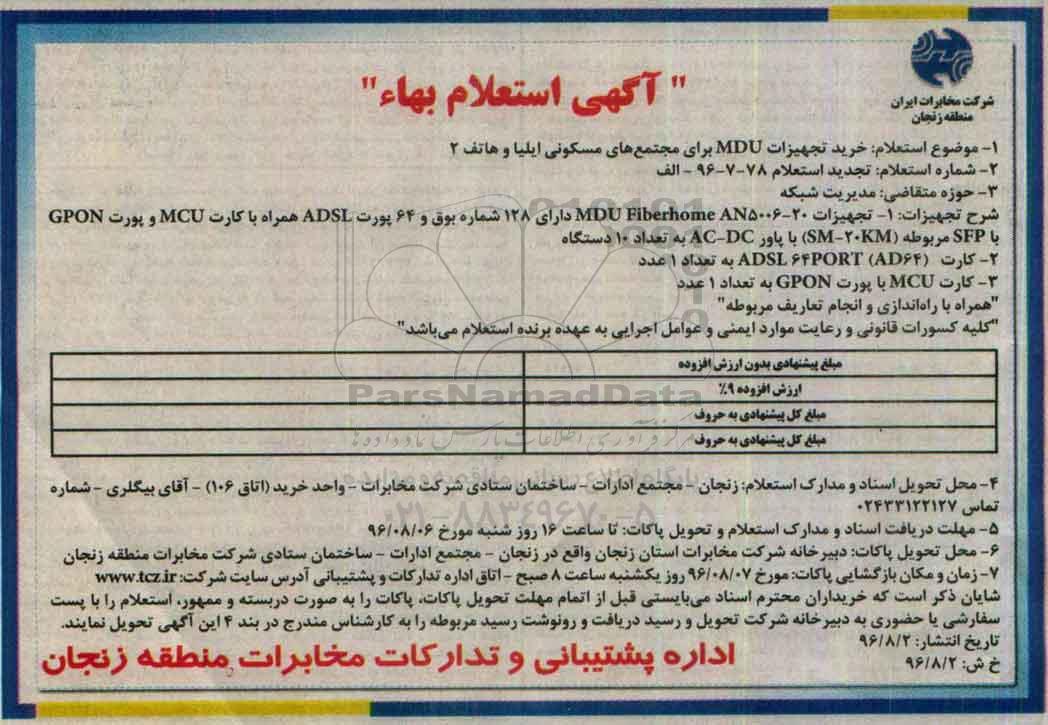 شرکت مخابرات ایران
منطقه زنجان
" آگهی استعلام بهاء"
۱- موضوع استعلام: خرید تجهیزات MDU برای مجتمع‌های مسکونی ایلیا و هاتف ۲
۲- شماره استعلام: تجدید استعلام ۷۸-۷-۹۶ - الف
۳- حوزه متقاضی: مدیریت شبکه
شرح تجهیزات: ۱- تجهیزات MDU Fiberhome AN۵۰۰۶-۲۰ دارای ۱۲۸ شماره بوق و ۶۴ پورت ADSL همراه با کارت MCU و پورت GPON
با SFP مربوطه (SM-۲۰KM) با پاور AC-DC به تعداد ۱۰ دستگاه
۲- کارت ADSL ۶۴PORT (AD۶۴) به تعداد ۱ عدد
۳- کارت MCU با پورت GPON به تعداد ۱ عدد
"همراه با راه‌اندازی و انجام تعاریف مربوطه"
"کلیه کسورات قانونی و رعایت موارد ایمنی و عوامل اجرایی به عهده برنده استعلام می‌باشد"
مبلغ پیشنهادی بدون ارزش افزوده
ارزش افزوده ۹%
مبلغ کل پیشنهادی به حروف
مبلغ کل پیشنهادی به حروف
ParsNamadData
۰۲۱-۸۸۳۴۹۶۷۰-۵
۴- محل تحویل اسناد و مدارک استعلام: زنجان - مجتمع ادارات - ساختمان ستادی شرکت مخابرات - واحد خرید (اتاق ۱۰۶) - آقای بیگلری - شماره
تماس ۰۲۴۳۳۱۲۲۱۲۷
۵- مهلت دریافت اسناد و مدارک استعلام و تحویل پاکات: تا ساعت ۱۶ روز شنبه مورخ ۹۶/۰۸/۰۶
۶- محل تحویل پاکات: دبیرخانه شرکت مخابرات استان زنجان واقع در زنجان - مجتمع ادارات - ساختمان ستادی شرکت مخابرات منطقه زنجان
۷- زمان و مکان بازگشایی پاکات: مورخ ۹۶/۰۸/۰۷ روز یکشنبه ساعت ۸ صبح - اتاق اداره تدارکات و پشتیبانی آدرس سایت شرکت: www.tcz.ir
شایان ذکر است که خریداران محترم اسناد می‌بایستی قبل از اتمام مهلت تحویل پاکات، پاکات را به صورت دربسته و ممهور، استعلام را با پست
سفارشی یا حضوری به دبیرخانه شرکت تحویل و رسید دریافت و رونوشت رسید مربوطه را به کارشناس مندرج در بند ۴ این آگهی تحویل نمایند.
تاریخ انتشار: ۹۶/۸/۲
خ ش: ۹۶/۸/۲
اداره پشتیبانی و تدارکات مخابرات منطقه زنجان